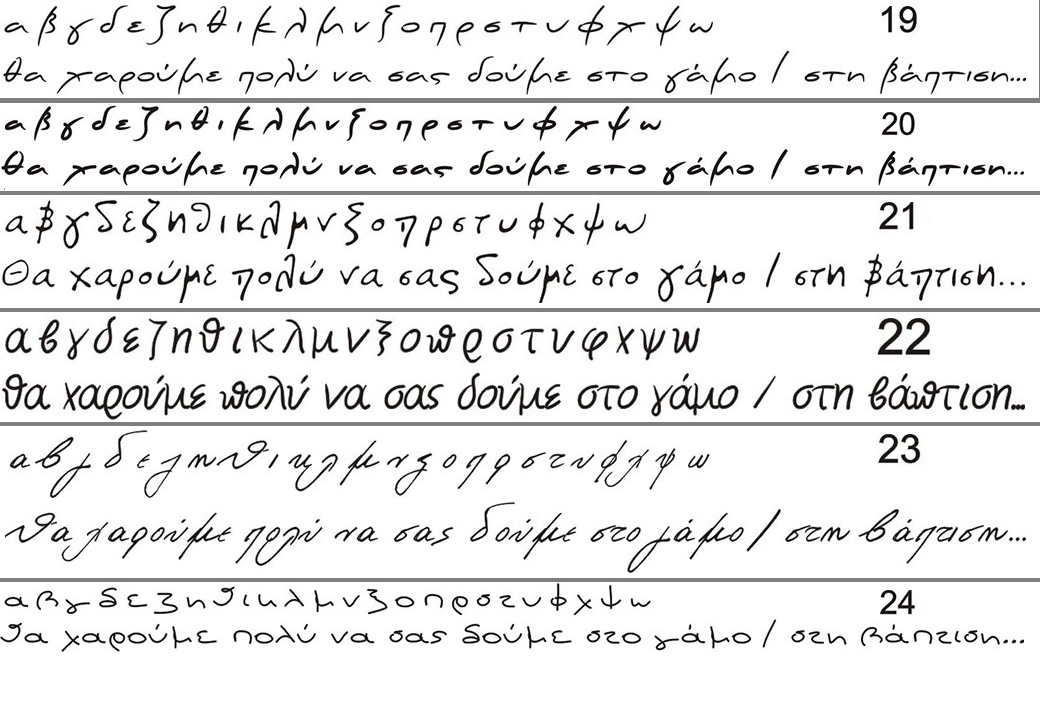 αβγδεζηθικλμνξοπρστυφχψω 19
θα χαρούμε πολύ να σας δούμε στο γάμο / στη βάπτιση...
αβγδεζηθικλμνξοπρστυφχψω 20
θα χαρούμε πολύ να σας δούμε στο γάμο / στη βάπτιση...
αβγδεζηθικλμνξοπρστυφχψω 21
Θα χαρούμε πολύ να σας δούμε στο γάμο / στη βάπτιση...
αβγδεζηθικλμνξοπρστυφχψω 22
θα χαρούμε πολύ να σας δούμε στο γάμο / στη βάπτιση...
αβγδεζηθικλμνξοπρστυφχψω 23
θα χαρούμε πολύ να σας δούμε στο γάμο / στη βάπτιση...
αβγδεζηθικλμνξοπρστυφχψω 24
θα χαρούμε πολύ να σας δούμε στο γάμο / στη βάπτιση...